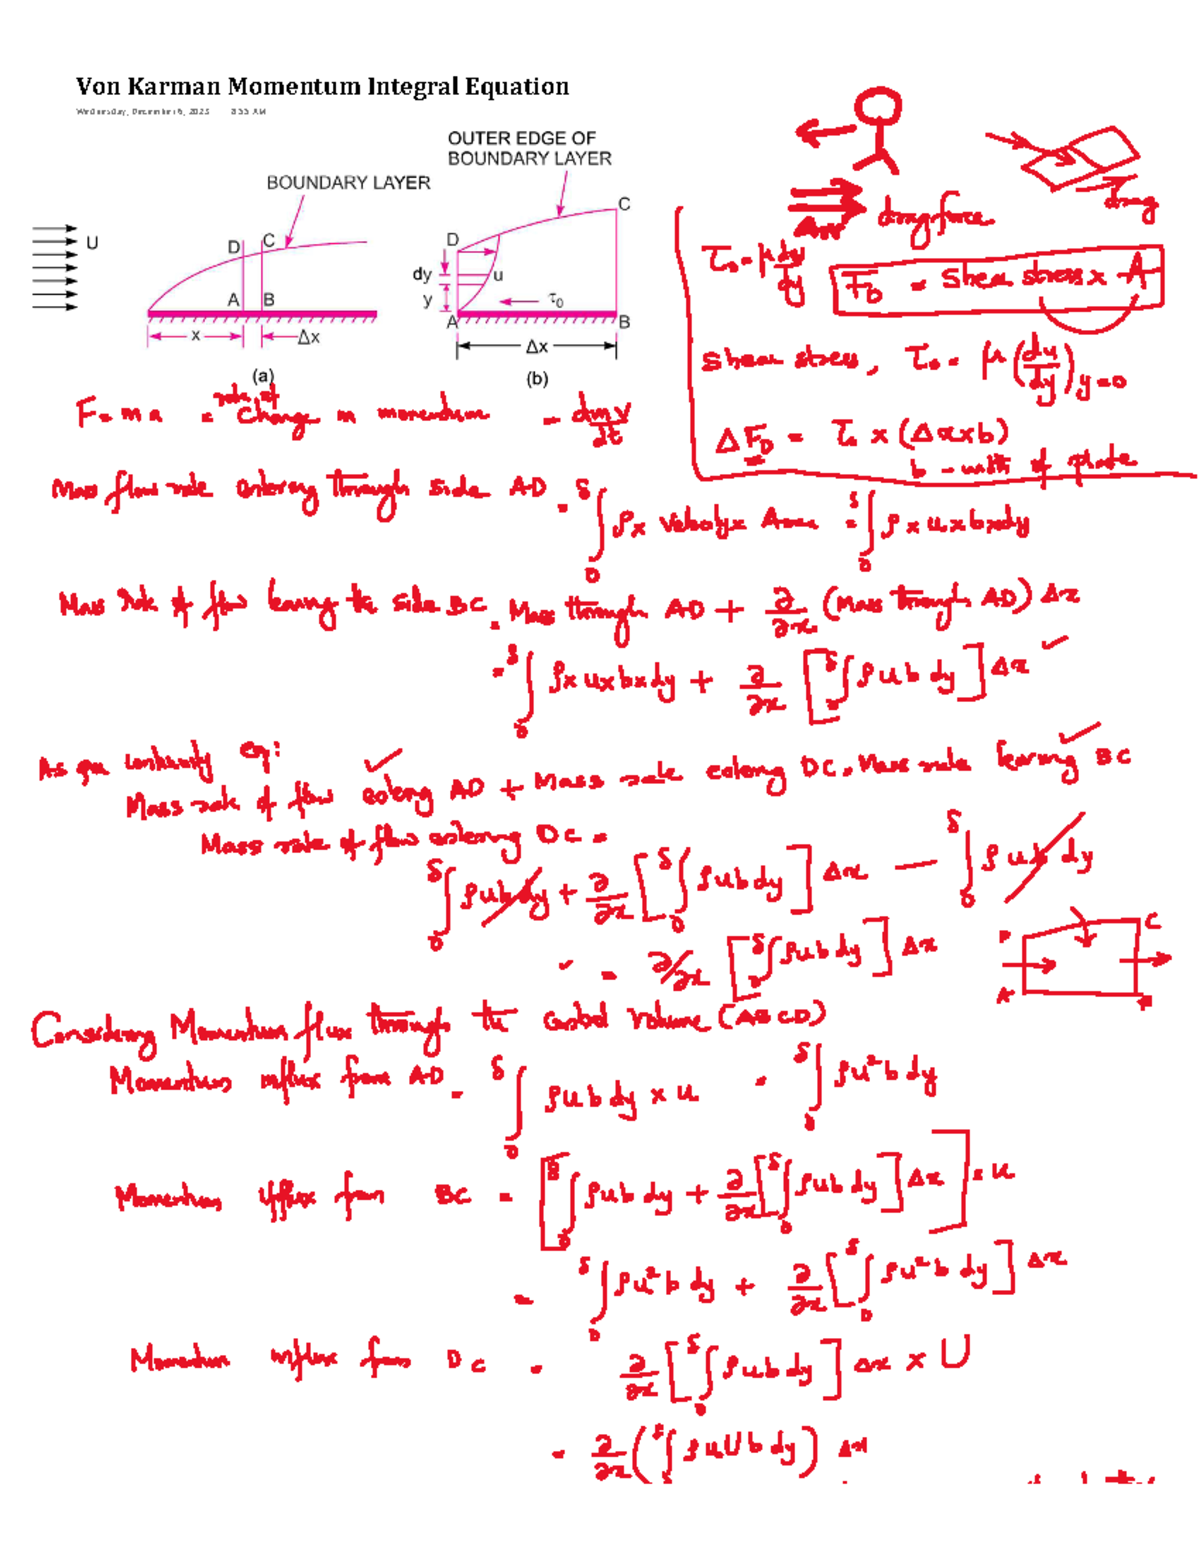 Von Karman Momentum Integral Equation
Wednesday, December 6, 2023 8:55 AM
OUTER EDGE OF
BOUNDARY LAYER
BOUNDARY LAYER
U
D C
A B
x Δx
(a)
C
D
dy u
y τ₀
A B
Δx
(b)
Air drag force
drag
τ₀ = μ du/dy
F_D = Shear stress x A
Shear stress, τ₀ = μ (du/dy)y=0
ΔF_D = τ₀ x (Δx x b)
b - width of plate
F = m a = rate of change in momentum = dmv/dt
Mass flow rate entering through side AD = ∫₀^δ ρ x velocity x Area = ∫₀^δ ρ x u x b x dy
Mass rate of flow leaving the side BC = Mass through AD + ∂/∂x (Mass through AD) Δx
= ∫₀^δ ρ x u x b x dy + ∂/∂x [∫₀^δ ρ u b dy] Δx ✓
As per continuity eq:
Mass rate of flow entering AD + Mass rate entering DC = Mass rate leaving BC
Mass rate of flow entering DC =
∫₀^δ ρ u b dy + ∂/∂x [∫₀^δ ρ u b dy] Δx — ∫₀^δ ρ u b dy
✓ = ∂/∂x [∫₀^δ ρ u b dy] Δx
D C
A B
Considering Momentum flux through the Control Volume (ABCD)
Momentum influx from AD = ∫₀^δ ρ u b dy x u = ∫₀^δ ρu² b dy
Momentum efflux from BC = [∫₀^δ ρ u b dy + ∂/∂x [∫₀^δ ρ u b dy] Δx] x u
= ∫₀^δ ρu² b dy + ∂/∂x [∫₀^δ ρu² b dy] Δx
Momentum influx from DC = ∂/∂x [∫₀^δ ρ u b dy] Δx x U
= ∂/∂x (∫₀^δ ρ u U b dy) Δx